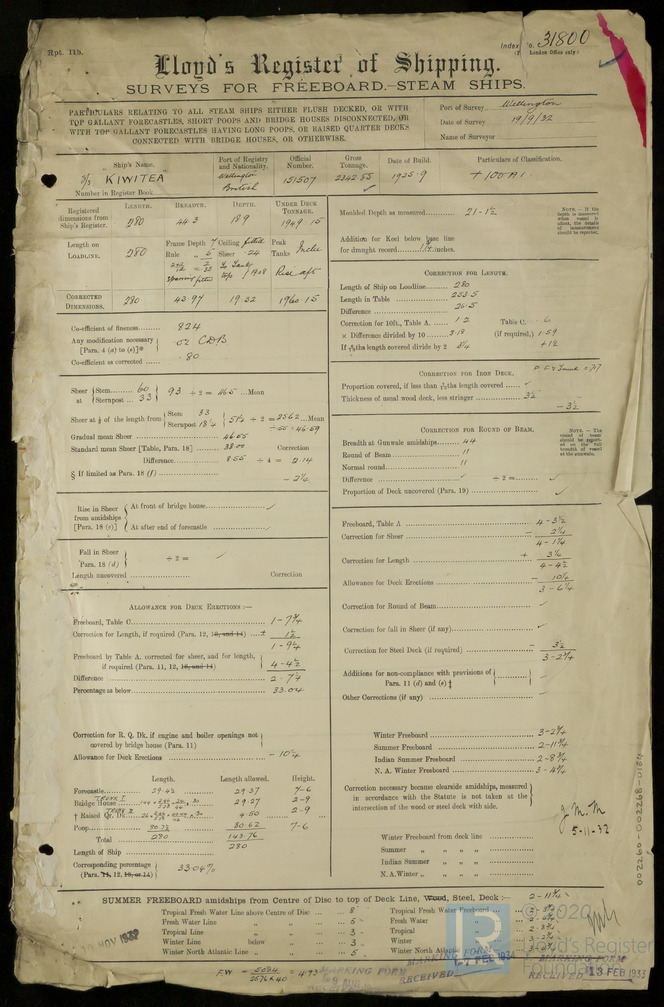 Rpt. 11b.
Index No. 31800
(For London Office only)
Lloyd's Register of Shipping.
SURVEYS FOR FREEBOARD.—STEAM SHIPS.
PARTICULARS RELATING TO ALL STEAM SHIPS EITHER FLUSH DECKED, OR WITH
TOP GALLANT FORECASTLES, SHORT POOPS AND BRIDGE HOUSES DISCONNECTED, OR
WITH TOP GALLANT FORECASTLES HAVING LONG POOPS, OR RAISED QUARTER DECKS
CONNECTED WITH BRIDGE HOUSES, OR OTHERWISE.
Port of Survey Wellington
Date of Survey 19/9/32
Name of Surveyor
Ship's Name. Port of Registry and Nationality. Official Number. Gross Tonnage. Date of Build. Particulars of Classification.
KIWITEA Wellington British 151507 2342.55 1925.9 + 100 A1
Number in Register Book
Registered dimensions from Ship's Register. LENGTH. BREADTH. DEPTH. UNDER DECK TONNAGE.
280 44.3 18.9 1949.15
Length on LOADLINE. 280 Frame Depth 7 Ceiling fitted Peak Tanks
Rule Sheer .24
Rise aft
CORRECTED DIMENSIONS. 280 43.97 19.32 1960.15
Moulded Depth as measured 21-1½
NOTE.—If the depth is measured when vessel is afloat, the details of measurement should be reported.
Addition for Keel below base line
for draught record inches.
CORRECTION FOR LENGTH.
Length of Ship on Loadline 280
Length in Table 253.5
Difference 26.5
Correction for 10ft., Table A. 1.2 Table C. .6
× Difference divided by 10 3.18 (if required,) 1.59
If 6/10ths length covered divide by 2 3¼ +1½
Co-efficient of fineness .824
Any modification necessary [Para. 4 (a) to (e)]* .02 CDB
Co-efficient as corrected .80
Sheer at Stem 60 Sternpost 33 93 ÷ 2 = 46.5 Mean
Sheer at ⅛ of the length from Stem 33 Sternpost 18¼ 51¼ ÷ 2 = 25.62 Mean
÷ .55 = 46.59
Gradual mean Sheer 46.55
Standard mean Sheer [Table, Para. 18] 38.00 Correction
Difference 8.55 ÷ 4 = 2.14
§ If limited as Para. 18 (f) - 2¼
CORRECTION FOR IRON DECK.
Proportion covered, if less than 7/10ths length covered
Thickness of usual wood deck, less stringer 3½
- 3½
CORRECTION FOR ROUND OF BEAM.
Breadth at Gunwale amidships 44
Round of Beam 11
Normal round 11
Difference ÷ 2 =
Proportion of Deck uncovered (Para. 19)
NOTE.—The round of beam should be reported on the full breadth of vessel at the gunwale.
Rise in Sheer from amidships [Para. 18 (e)] At front of bridge house
At after end of forecastle
Fall in Sheer Para. 18 (d) ÷ 2 =
Length uncovered Correction
ALLOWANCE FOR DECK ERECTIONS :—
Freeboard, Table C 1-7¾
Correction for Length, if required (Para. 12, 13, and 14) ± 1½
1-9¼
Freeboard by Table A. corrected for sheer, and for length,
if required (Para. 11, 12, 13, and 14) 4-4½
Difference 2-7¼
Percentage as below 33.04
Correction for R. Q. Dk. if engine and boiler openings not
covered by bridge house (Para. 11)
Allowance for Deck Erections - 10¼
Length. Length allowed. Height.
Forecastle 29.42 29.37 7-6
Bridge House TRUNK 1 2-9
† Raised Qr. Dk. TRUNK 2 4.50 2-9
Poop 30.62 7-6
Total 280 143.76
Length of Ship 280
Corresponding percentage (Para. 11, 12, 13, or 14) 33.04%
Freeboard, Table A 4-3½
Correction for Sheer - 2¼
4-1¼
Correction for Length + 3¼
4-4½
Allowance for Deck Erections - 10¼
3-6¼
Correction for Round of Beam
Correction for fall in Sheer (if any)
Correction for Steel Deck (if required) - 3½
3-2¾
Additions for non-compliance with provisions of Para. 11 (d) and (e) ‡
Other Corrections (if any)
Winter Freeboard 3-2¾
Summer Freeboard 2-11¾
Indian Summer Freeboard 2-8¾
N. A. Winter Freeboard 3-4¾
Correction necessary because clearside amidships, measured
in accordance with the Statute is not taken at the
intersection of the wood or steel deck with side.
J.M.M
5-11-32
Winter Freeboard from deck line
Summer „ „ „ „
Indian Summer „ „ „
N. A. Winter „ „ „ „
002260-002268-0184
SUMMER FREEBOARD amidships from Centre of Disc to top of Deck Line, Wood, Steel, Deck :— 2-11¾
Tropical Fresh Water Line above Centre of Disc 8 Tropical Fresh Water Freeboard
Fresh Water Line „ „ 5 Fresh Water „
Tropical Line „ „ 3 Tropical „ 2-8¾
Winter Line below „ 3 Winter „ 3-2¾
Winter North Atlantic Line „ „ 5 Winter North Atlantic „
NOV 1932
MARKING FORM RECEIVED
MARKING FORM
RECEIVED 7 FEB 1934
MARKING FORM
RECEIVED 13 FEB 1933
©2020
LR
Lloyd's Register
Foundation